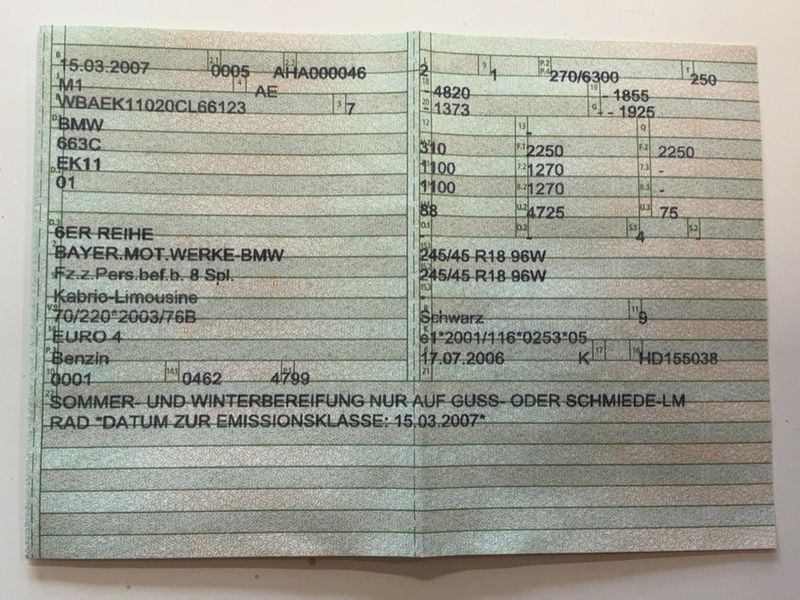 15.03.2007 0005 AHA000046
M1 AE
WBAEK11020CL66123 3 7
BMW
663C
EK11
01
6ER REIHE
BAYER.MOT.WERKE-BMW
Fz.z.Pers.bef.b. 8 Spl.
Kabrio-Limousine
70/220*2003/76B
EURO 4
Benzin
0001 0462 4799
2 9 1 P.2 P.4 270/6300 T 250
18 - 4820 19 - 1855
20 - 1373 G - - 1925
12 13 - Q
310 F.1 2250 F.2 2250
1100 7.2 1270 7.3 -
1100 8.2 1270 8.3 -
88 U.2 4725 U.3 75
O.1 - O.2 - S.1 4 S.2
245/45 R18 96W
245/45 R18 96W
-
Schwarz 11 9
e1*2001/116*0253*05
17.07.2006 K 17 16 HD155038
21
SOMMER- UND WINTERBEREIFUNG NUR AUF GUSS- ODER SCHMIEDE-LM
RAD *DATUM ZUR EMISSIONSKLASSE: 15.03.2007*